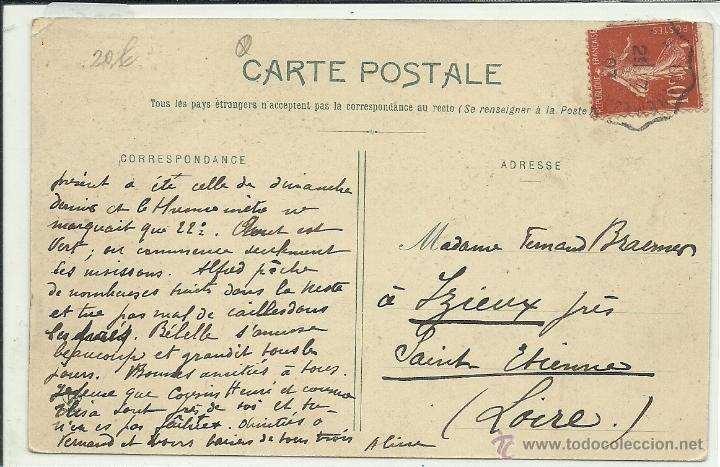 20 c
CARTE POSTALE
Tous les pays étrangers n'acceptent pas la correspondance au recto (Se renseigner à la Poste)
REPUBLIQUE FRANÇAISE
POSTES
10
CORRESPONDANCE
présent a été celle de dimanche
dernier et le thermomètre ne
marquait que 22°. est
vert ; on commence seulement
les moissons. Alfred pêche
de nombreuses truites dans la Neste
et tue pas mal de cailles dans
les prés. Bébelle s'amuse
beaucoup et grandit tous les
jours. Bonnes amitiés à tous.
Je pense que Cousin Henri et cousine
Elisa sont près de toi et tu
n'es pas . Amitiés à
Fernand et bons baisers de tous trois
Aline
ADRESSE
Madame Fernand Braemer
à Izieux près
Saint-Etienne
(Loire.)
© www.todocoleccion.net